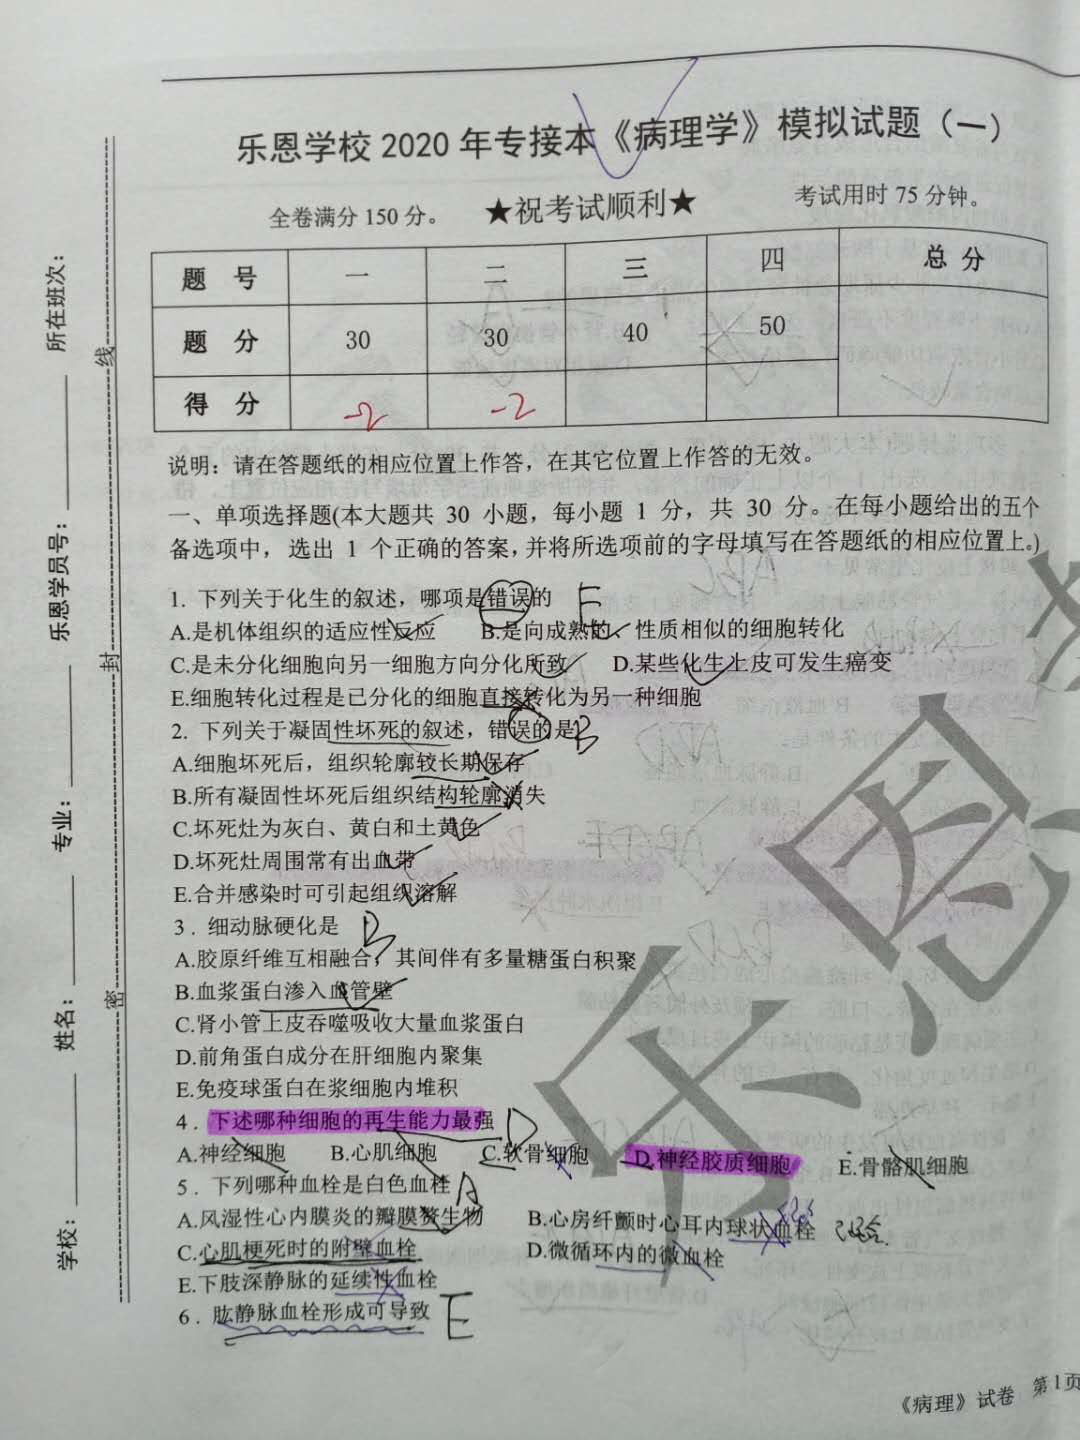 乐恩学校 2020 年专接本《病理学》模拟试题（一）
全卷满分 150 分。 ★祝考试顺利★ 考试用时 75 分钟。
题 号 一 二 三 四 总 分
题 分 30 30 40 50
得 分 -2 -2
说明：请在答题纸的相应位置上作答，在其它位置上作答的无效。
一、单项选择题(本大题共 30 小题，每小题 1 分，共 30 分。在每小题给出的五个
备选项中，选出 1 个正确的答案，并将所选项前的字母填写在答题纸的相应位置上。)
1. 下列关于化生的叙述，哪项是错误的 E
A.是机体组织的适应性反应 B.是向成熟的、性质相似的细胞转化
C.是未分化细胞向另一细胞方向分化所致 D.某些化生上皮可发生癌变
E.细胞转化过程是已分化的细胞直接转化为另一种细胞
2. 下列关于凝固性坏死的叙述，错误的是 B
A.细胞坏死后，组织轮廓较长期保存
B.所有凝固性坏死后组织结构轮廓消失
C.坏死灶为灰白、黄白和土黄色
D.坏死灶周围常有出血带
E.合并感染时可引起组织溶解
3．细动脉硬化是 B
A.胶原纤维互相融合，其间伴有多量糖蛋白积聚
B.血浆蛋白渗入血管壁
C.肾小管上皮吞噬吸收大量血浆蛋白
D.前角蛋白成分在肝细胞内聚集
E.免疫球蛋白在浆细胞内堆积
4．下述哪种细胞的再生能力最强 D
A.神经细胞 B.心肌细胞 C.软骨细胞 D.神经胶质细胞 E.骨骼肌细胞
5．下列哪种血栓是白色血栓 A
A.风湿性心内膜炎的瓣膜赘生物 B.心房纤颤时心耳内球状血栓
C.心肌梗死时的附壁血栓 D.微循环内的微血栓
E.下肢深静脉的延续性血栓
6．肱静脉血栓形成可导致 E
《病理》试卷 第1页
所在班次：
乐恩学员号：
专业：
姓名：
学校：
线
封
密
乐恩